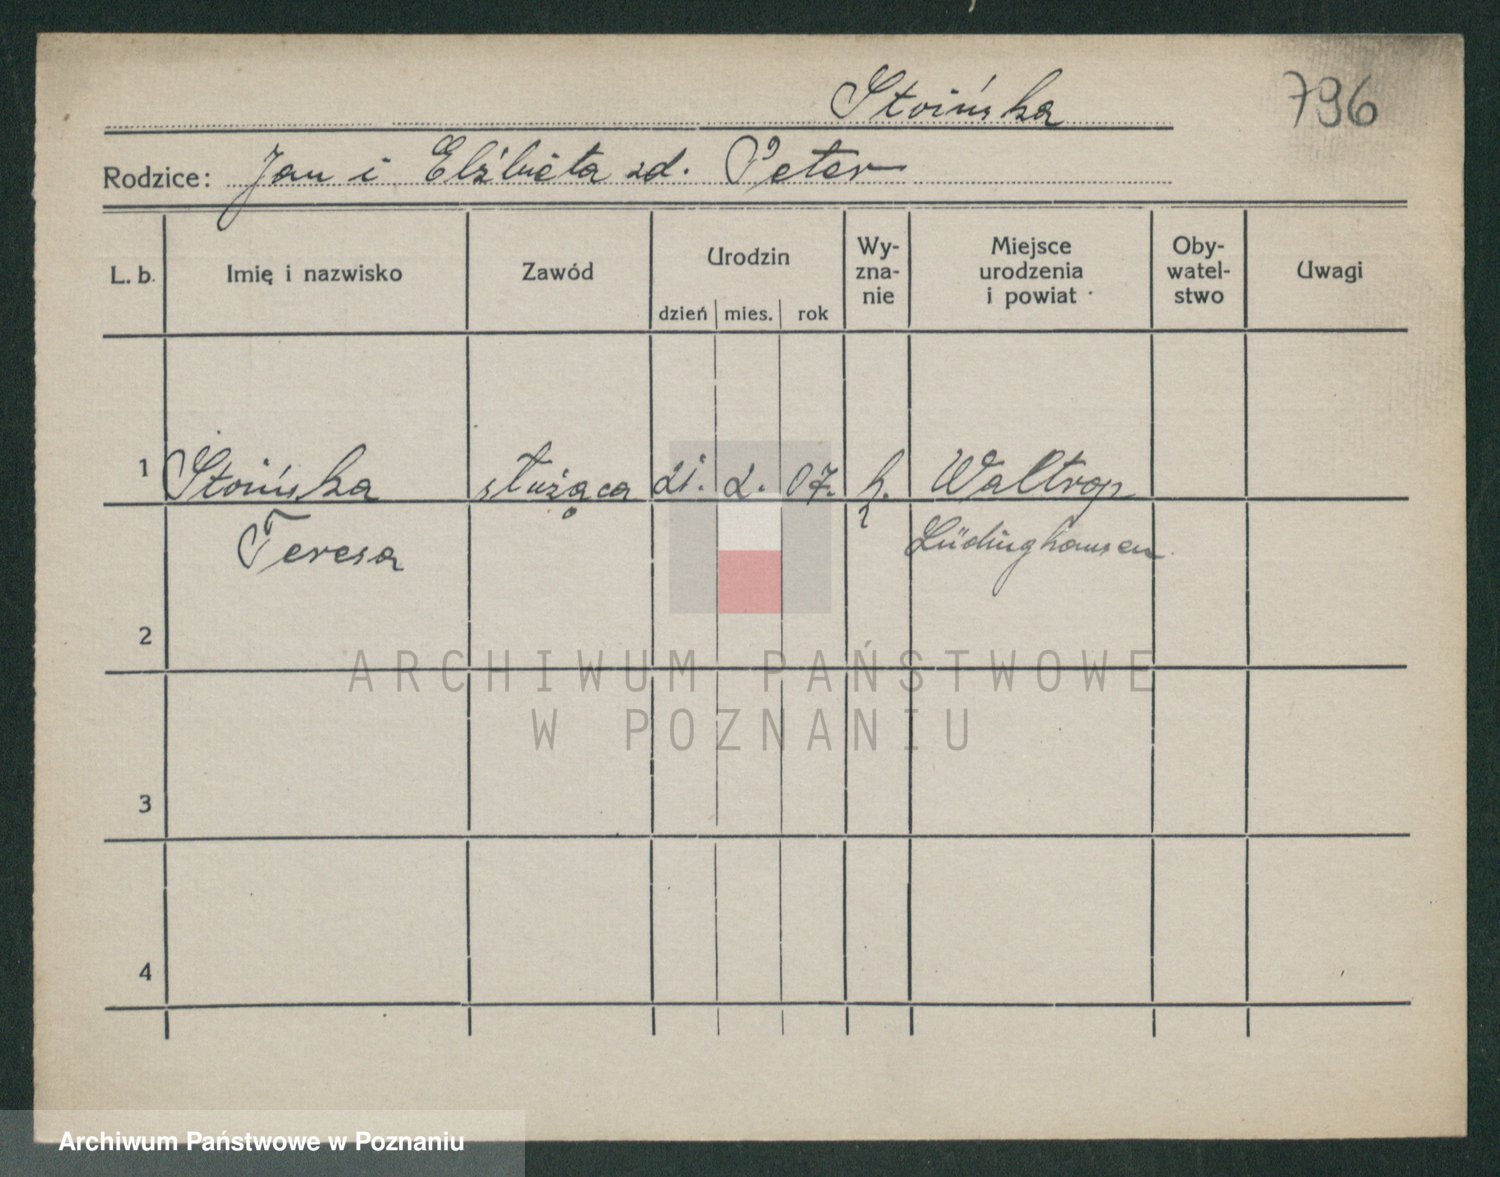 Stoińska 796
Rodzice: Jan i Elżbieta zd. Peter
L. b. Imię i nazwisko Zawód Urodzin dzień mies. rok Wy-zna-nie Miejsce urodzenia i powiat Oby-watel-stwo Uwagi
1 Stoińska służąca 21. 2. 07. k. Waltrop
Teresa Lüdinghausen
2
ARCHIWUM PAŃSTWOWE
W POZNANIU
3
4
Archiwum Państwowe w Poznaniu